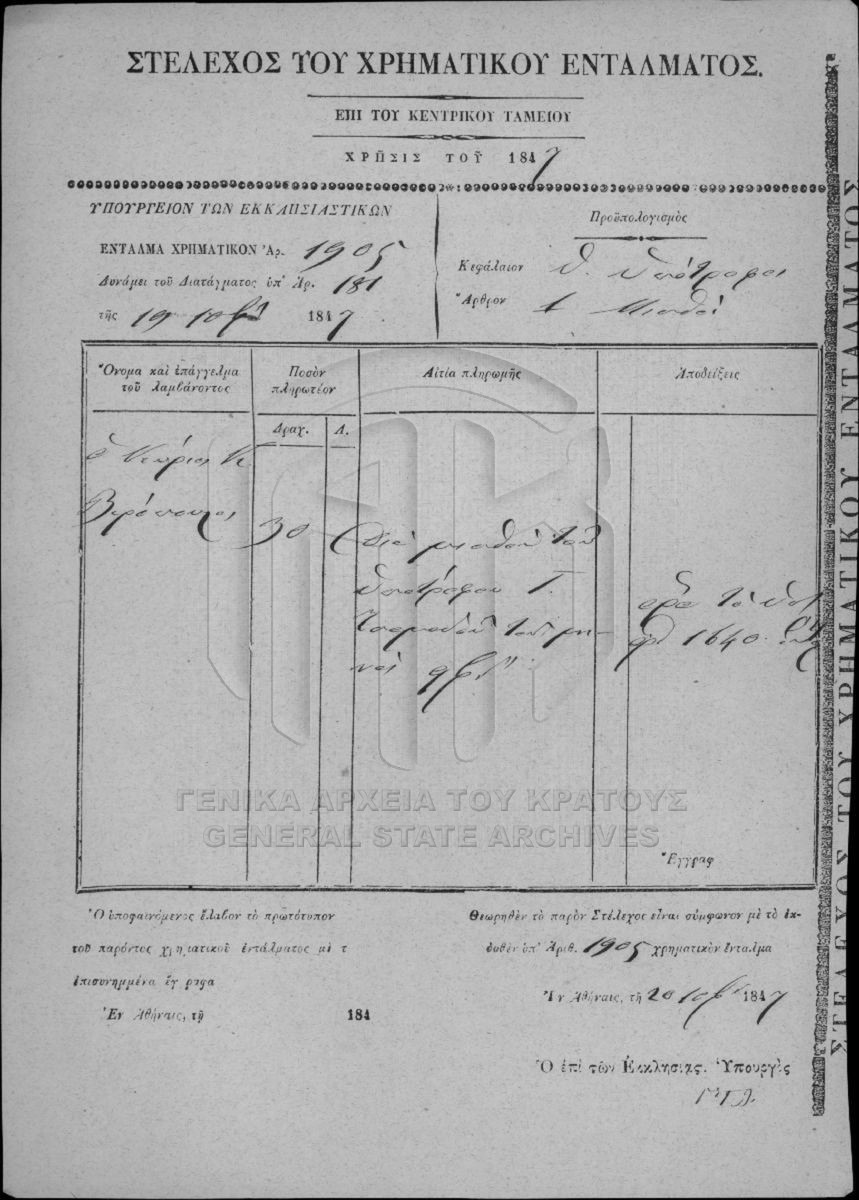 ΣΤΕΛΕΧΟΣ ΤΟΥ ΧΡΗΜΑΤΙΚΟΥ ΕΝΤΑΛΜΑΤΟΣ.
ΕΠΙ ΤΟΥ ΚΕΝΤΡΙΚΟΥ ΤΑΜΕΙΟΥ
ΧΡΗΣΙΣ ΤΟΥ͂ 1847
ΥΠΟΥΡΓΕΙΟΝ ΤΩΝ ΕΚΚΛΗΣΙΑΣΤΙΚΩΝ
ΕΝΤΑΛΜΑ ΧΡΗΜΑΤΙΚΟΝ Ἀρ. 1905
Δυνάμει τοῦ Διατάγματος ὑπ' Ἀρ. 181
τῆς 19 10βρίου 1847
Προϋπολογισμὸς
Κεφάλαιον Θ. Ὑπότροφοι
Ἄρθρον 1 Μισθοὶ
Ὄνομα καὶ ἐπάγγελμα
τοῦ λαμβάνοντος
Ποσὸν
πληρωτέον
Δραχ. Λ.
Αἰτία πληρωμῆς
Ἀποδείξεις
ὁ Κύριος Κ
30
Διὰ μισθὸν τοῦ
ὑποτρόφου Γ.
τοῦ μη-
νὸς 9βρίου
ὅρα τὸ
ἀρ. 1640
ΓΕΝΙΚΑ ΑΡΧΕΙΑ ΤΟΥ ΚΡΑΤΟΥΣ
GENERAL STATE ARCHIVES
Ἔγγραφ
Ὁ ὑποφαινόμενος ἔλαβον τὸ πρωτότυπον
τοῦ παρόντος χρηματικοῦ ἐντάλματος μὲ τ
ἐπισυνημμένα ἔγγραφα
Ἐν Ἀθήναις, τῇ 184
Θεωρηθὲν τὸ παρὸν Στέλεχος εἶναι σύμφωνον μὲ τὸ ἐκ-
δοθὲν ὑπ' Ἀριθ. 1905 χρηματικὸν ἔνταλμα
Ἐν Ἀθήναις, τῇ 20 10βρίου 1847
Ὁ ἐπὶ τῶν Ἐκκλησιας. Ὑπουργὸς
ΣΤΕΛΕΧΟΣ ΤΟΥ ΧΡΗΜΑΤΙΚΟΥ ΕΝΤΑΛΜΑΤΟΣ